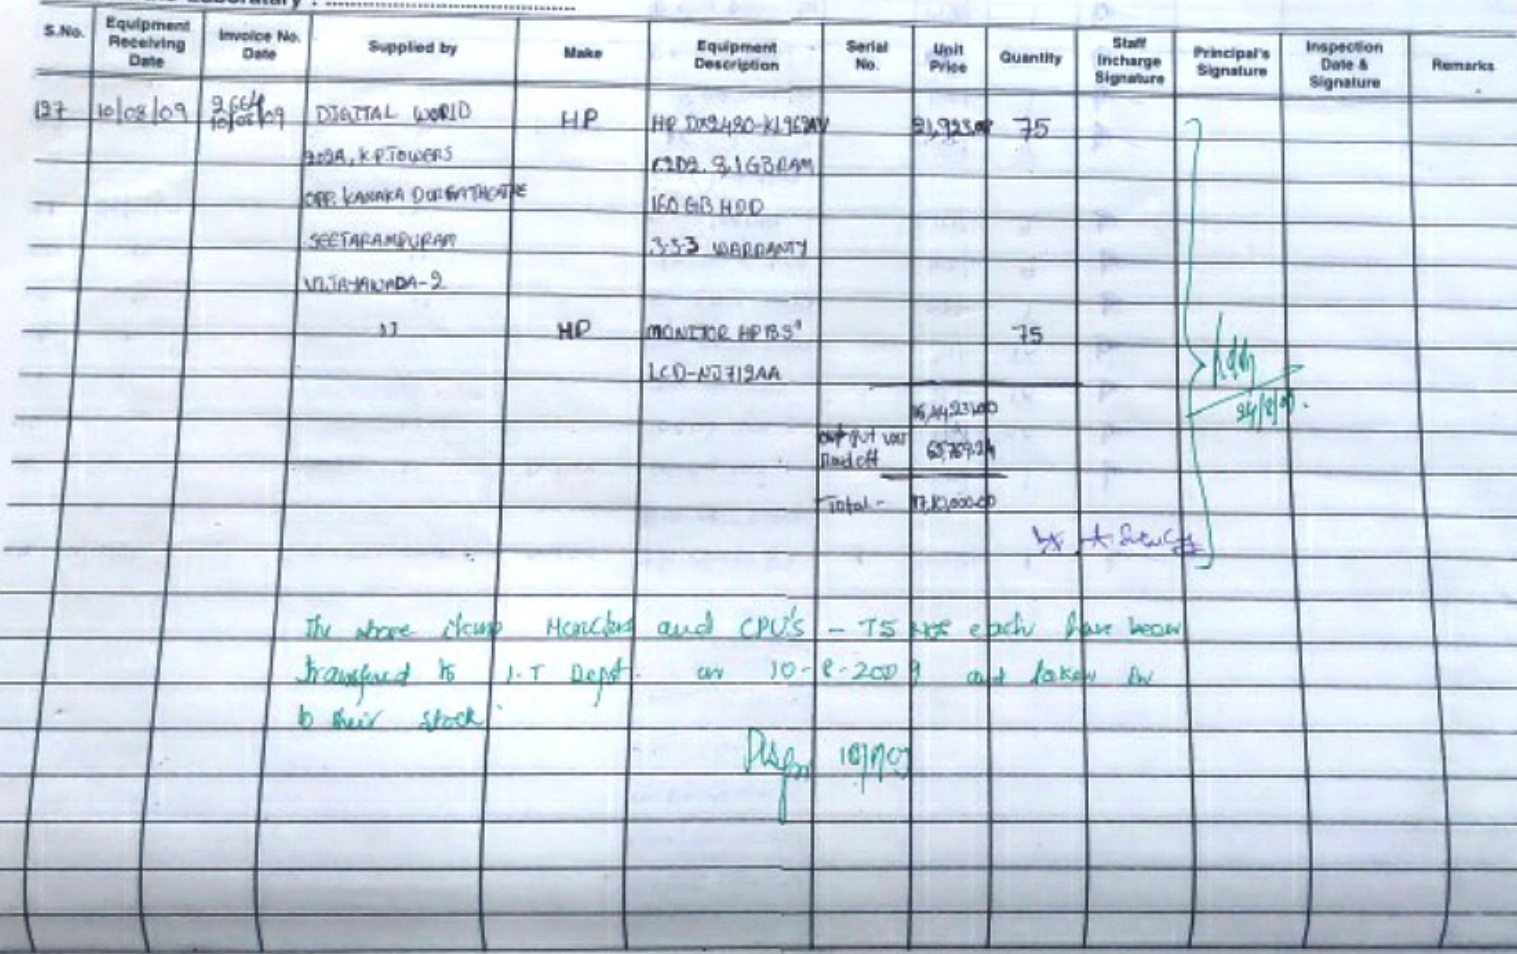 Laboratary : ........................................
S.No. Equipment Receiving Date Invoice No. Date Supplied by Make Equipment Description Serial No. Unit Price Quantity Staff Incharge Signature Principal's Signature Inspection Date & Signature Remarks
127 10/08/09 2664 10/08/09 DIGITAL WORLD HP HP DX2480-KL969AV 21,923.08 75
202A, K.P.TOWERS C2D2.8,1GBRAM
OPP. KANAKA DURGATHEATRE 160 GB HDD
SEETARAMPURAM 3-3-3 WARRANTY
VIJAYAWADA-2
11 HP MONITOR HP 18.5" 75
LCD-NJ719AA
16,44,231.00
24/8/09.
output vat 65,769.24
Roud off
Total - 17,10,000-00
The above items Monitors and CPU's - 75 Nos each have been
transfered to I.T Dept. on 10-8-2009 and taken in
to their stock.